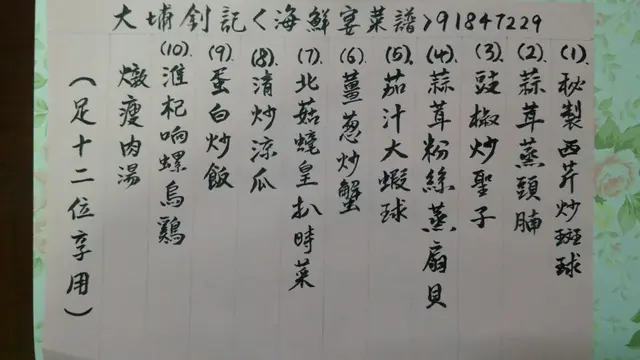 大埔釗記<海鮮宴菜譜>91847229
(1).秘製西芹炒斑球
(2).蒜茸蒸頭腩
(3).豉椒炒聖子
(4).蒜茸粉絲蒸扇貝
(5).茄汁大蝦球
(6).薑葱炒蟹
(7).北菇蠔皇扒時菜
(8).清炒涼瓜
(9).蛋白炒飯
(10).淮杞响螺烏鷄
燉瘦肉湯
(足十二位享用)